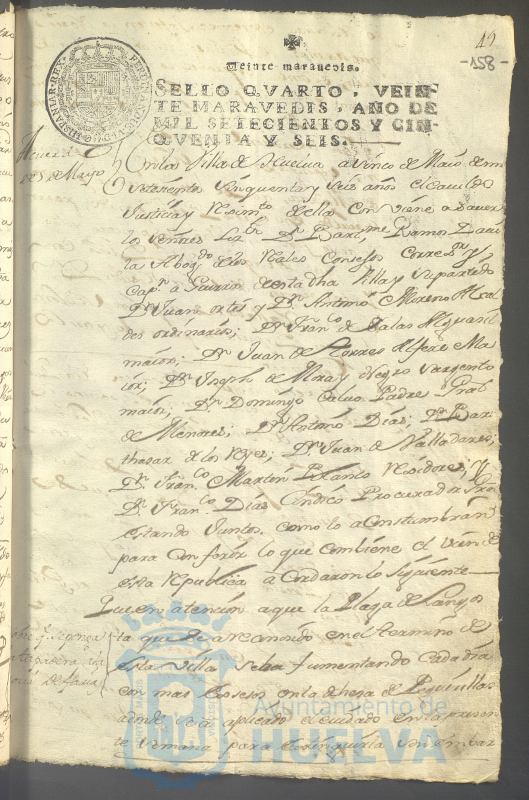 49
-158-
Veinte maravedis.
SELLO QVARTO, VEIN
TE MARAVEDIS, AÑO DE
MIL SETECIENTOS Y CIN
QVENTA Y SEIS.
de Mayo
En la Villa de Huelva a cinco de Maio de mill
setecientos cinquenta y seis años el Cavildo
Justicia y Rexim.to de ella conviene a saver
los señores Liz.do Dn Bar.me Ramos Davi
la Abog.do de los Reales Consejos Correg.or y
Cap.n a Guerra de esta dha Villa y su partido
Dn Juan ortis y Dn Antonio Moreno Alcal
des ordinarios; Dn Fran.co de Salas Alguasil
maior; Dn Juan de Torres Alferes Ma
ior; Dn Joseph de Mora y Negro sargento
maior; Dn Domingo Calvo Padre Gral
de Menores; Dn Antonio Dias; Dn Bal
thasar de los Reyes; Dn Juan de Valladares;
Dn Fran.co Martin Rexidores; y
Dn Fran.co Dias Sindico Procurador
estando Juntos como lo acostumbran
para conferir lo que combiene el vien de
esta Republica acordaron lo siguiente
Que en atencion a que la Plaga de Langos
ta que se a reconosido en el termino de
esta Villa se ba fumentando cada dia
con mas exseso en la dhesa de
adonde se a aplicado el cuidado en la presen
te semana para extinguirla sin embar
Ayuntamiento de
HUELVA